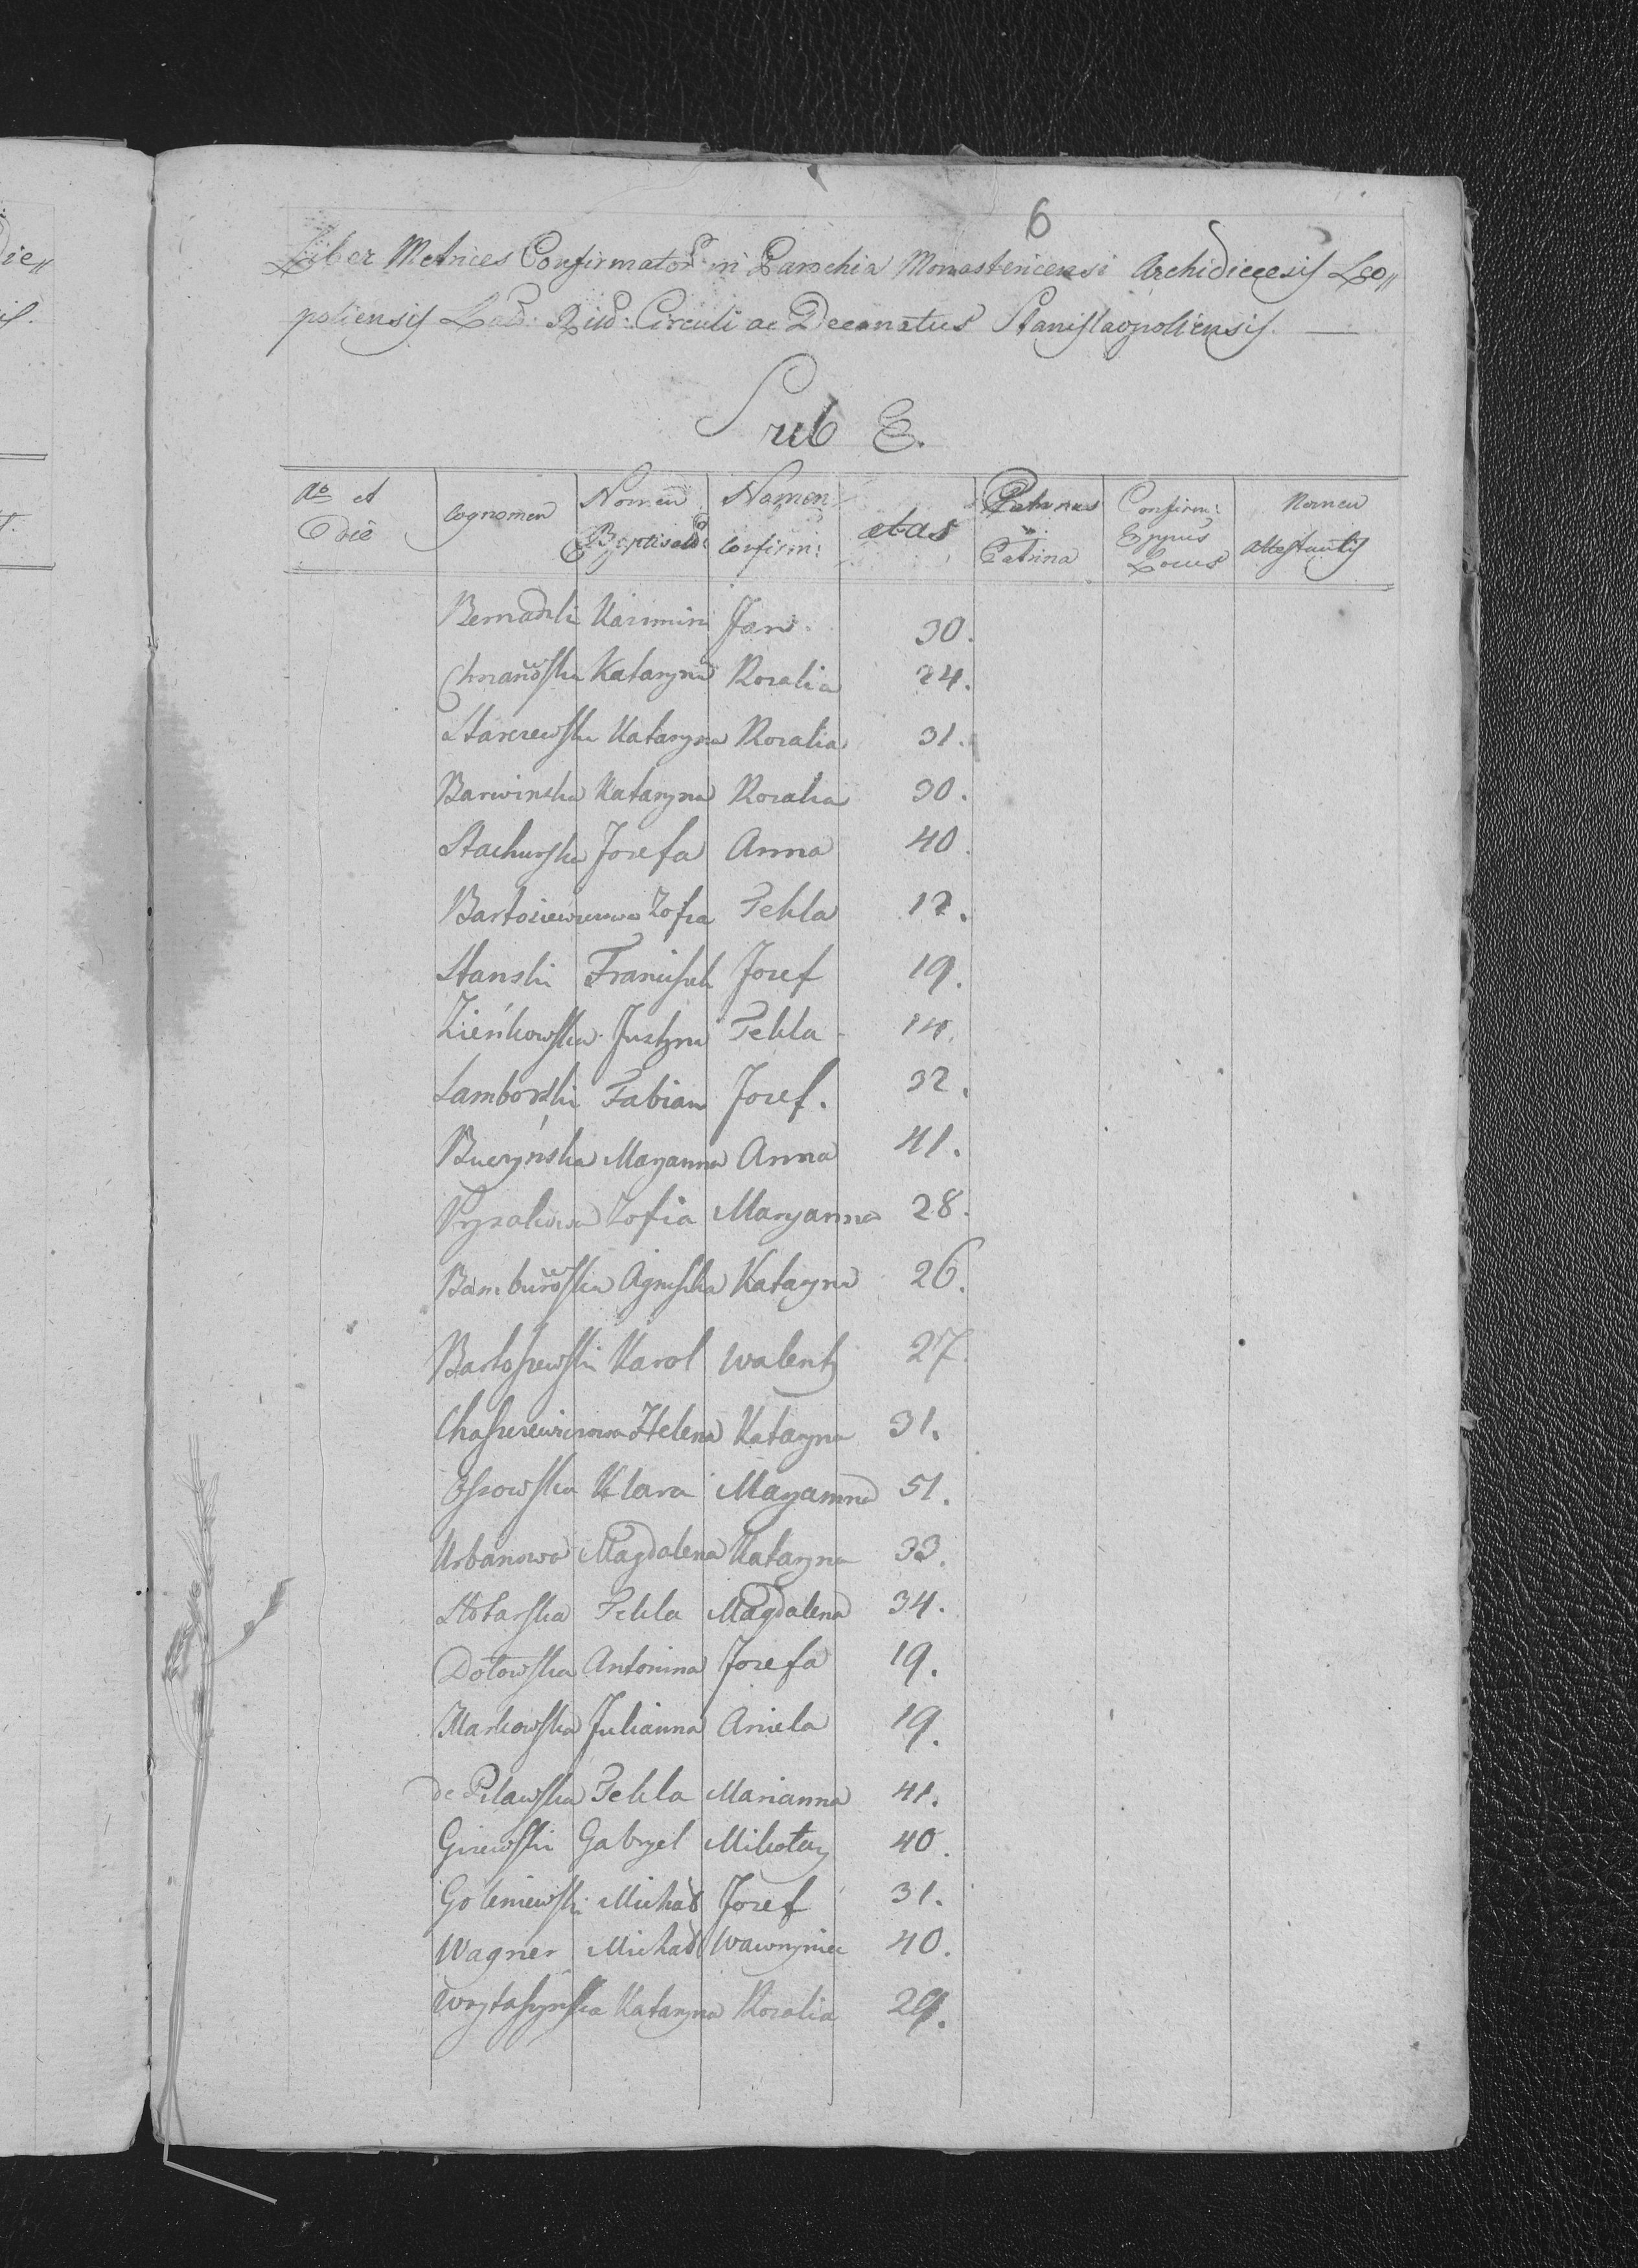 6
Liber Metrices Confirmator in Parochia Monastericensi Archidiecesis Leo„
poliensis Lad: Rit: Circuli ac Decanatus Stanislaopoliensis.
Sub E.
Ao et Die | Cognomen | Nomen Baptisat: | Nomen Confirm: | etas | Patrinus Patrina | Confirm: Eppus Locus | Nomen Attestantis
Bernadzki Kazimirz Jan 30.
Chrzanowska Katarzyna Rozalia 24.
Starzewska Katarzyna Rozalia 31.
Barwinska Katarzyna Rozalia 30.
Stachurska Jozefa Anna 40.
Bartosiewiczowa Zofia Tekla 12.
Stanski Franciszek Jozef 19.
Zieńkowska Justyna Tekla 14.
Samborski Fabian Jozef. 32.
Buczyńska Maryanna Anna 41.
Zofia Maryanna 28.
Bamburowska Agnieszka Katarzyna 26.
Bartoszewski Karol Walenty 27.
Helena Katarzyna 31.
Ossowska Klara Maryanna 51.
Urbanowa Magdalena Katarzyna 33.
Stolarska Tekla Magdalena 34.
Dołowska Antonina Jozefa 19.
Markowska Julianna Aniela 19.
de Pilawska Tekla Marianna 41.
Gizewski Gabryel Mikołay 40.
Goleniewski Michał Jozef 31.
Wagner Michał Wawrzyniec 40.
Woytaszyńska Katarzyna Rozalia 29.